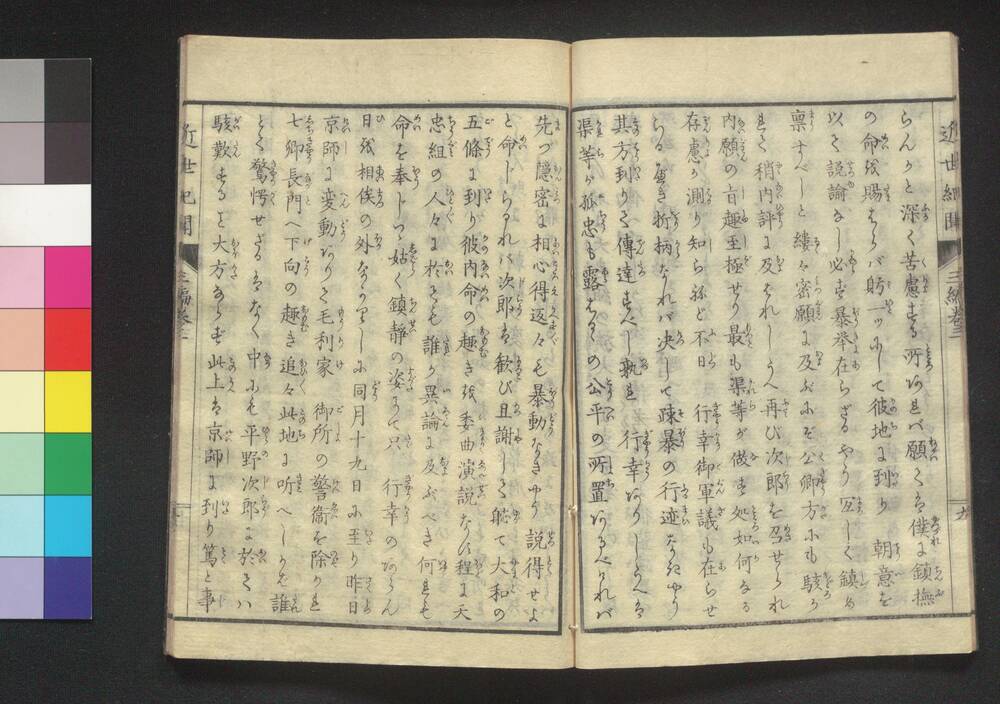 近世紀聞 三編巻三 九
らんかと深く苦慮する所なれバ願くは僕に鎮撫
の命を賜はらバ馳一ツにして彼地に到り 朝意を
以て説諭なし必ず暴挙在らざるやう宜しく鎮め
禀すべしと縷々密願に及ぶにぞ公卿方にも駭か
れて稍内評に及ばれしうへ再び次郎を召せられ
内願の旨趣至極せり最も渠等が做す処如何なる
存慮か測り知らねど不日 行幸御軍議も在らせ
らる可き折柄なれバ决して疎暴の行迹なきやう
其方到りて傳達すべし孰れ 行幸ありしうへは
渠等が孤忠も露はるゝの公平の所置あるべけれバ
先ツ隠密に相心得返々も暴動なきやう説得せよ
と命じられバ次郎は歓び且謝して軈て大和の
五條に到り彼内命の趣きを委曲演説なす程に天
忠組の人々に於ても誰か異論に及ぶべき何れも
命を奉じつゝ姑く鎮静の姿にて只 行幸のあらん
日を相俟の外なかりしに同月十九日に至り昨日
京師に変動ありて毛利家 御所の警衛を除かれ
七卿長門へ下向の趣き追々此地に听へしかバ誰
とて驚愕せざるはなく中にも平野次郎に於てハ
駭歎すること大方ならず此上は京師に到り篤と事
近世紀聞 三編巻三